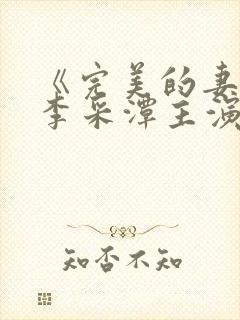 《完美的妻
李采潭主演
知否不知